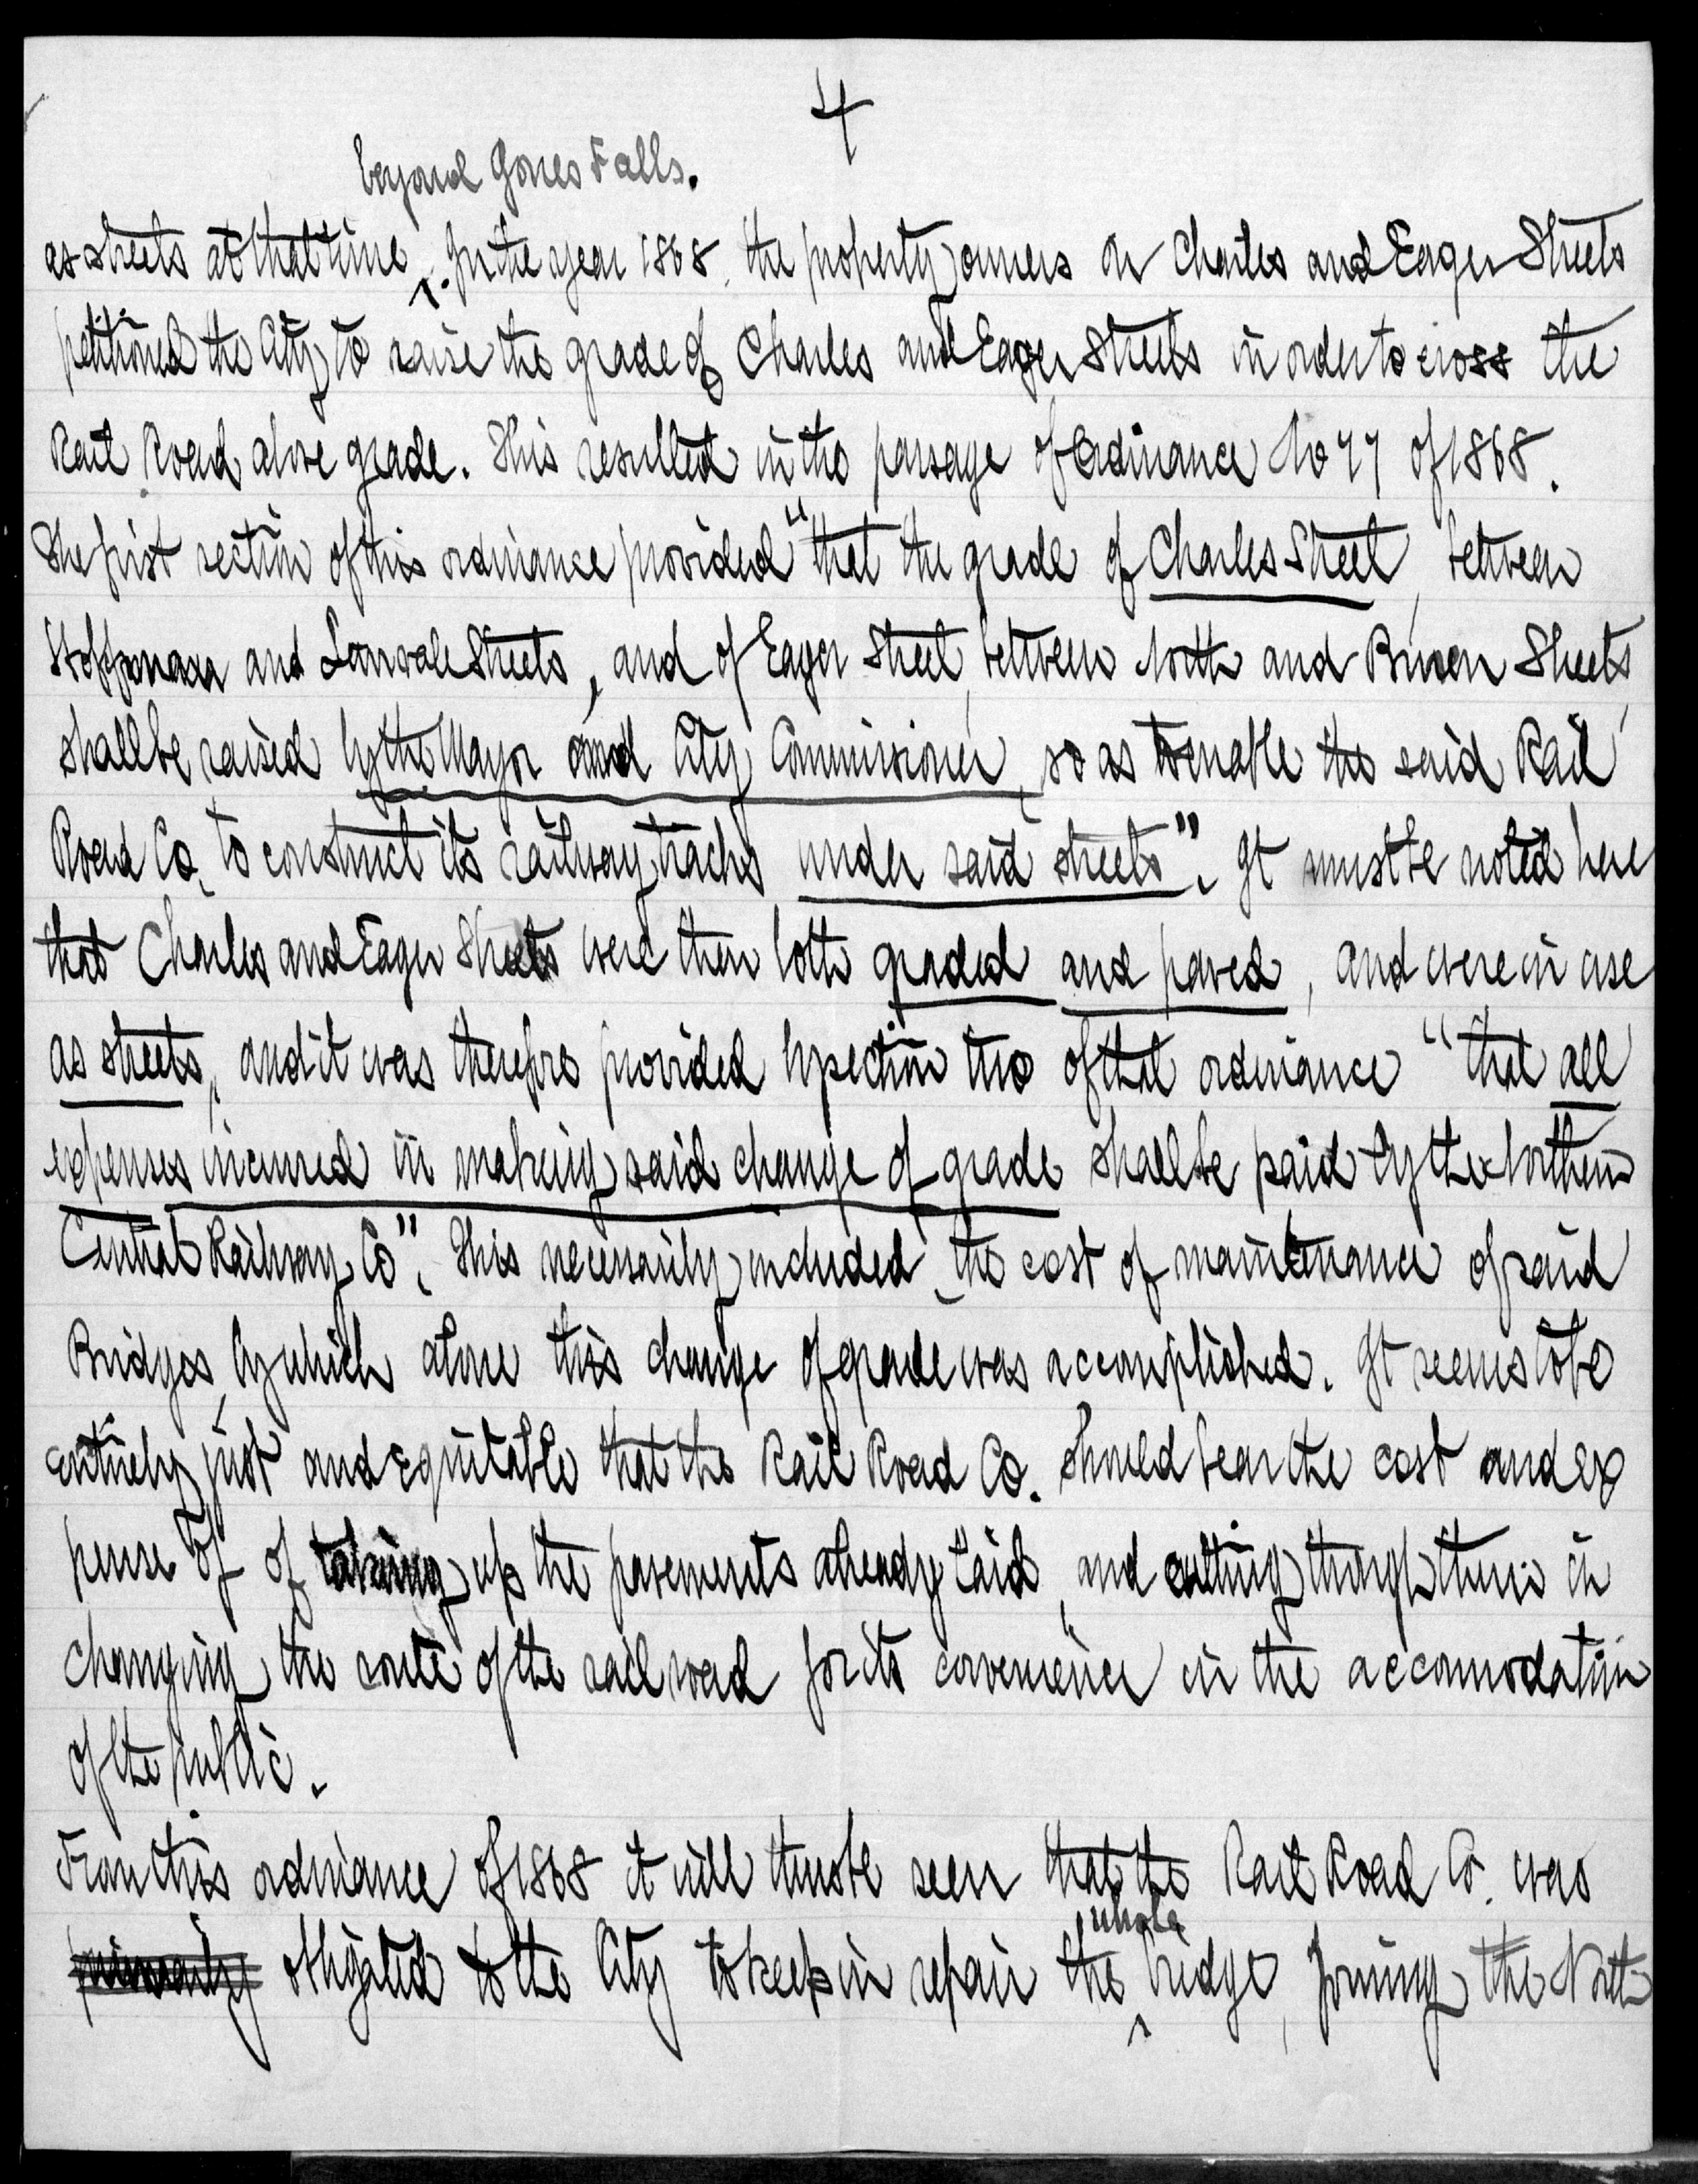 4
beyond Jones Falls.
as streets at that time ^. In the year 1868, the property owners on Charles and Eager Streets
petitioned the City to raise the grade of Charles and Eager Streets in order to cross the
Rail Road above grade. This resulted in the passage of Ordinance No 77 of 1868.
The first section of this ordinance provided "that the grade of Charles Street, between
Hoffman and Lanvale Streets, and of Eager Street, between North and Buren Streets,
shall be raised by the Mayor and City Commissioner, so as to enable the said Rail
Road Co. to construct its railway tracks under said streets". It must be noted here
that Charles and Eager Streets were then both graded and paved, and were in use
as streets, and it was therefore provided by section two of that ordinance "that all
expenses incurred in making said change of grade shall be paid by the Northern
Central Railway Co". This necessarily included, the cost of maintenance of said
Bridges, by which alone this change of grade was accomplished. It seems to be
entirely just and equitable that the Rail Road Co. should bear the cost and ex
pense of of taking up the pavements already laid, and cutting through them in
changing the route of the railroad for its convenience in the accommodation
of the public.
From this ordinance of 1868 it will thus be seen that the Rail Road Co. was
primarily obligated to the City to keep in repair the ^ whole bridge, forming the North